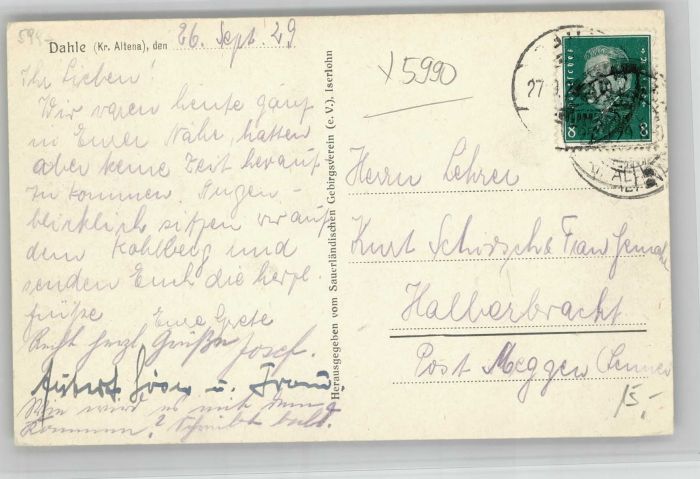 Dahle (Kr. Altena), den 26. Sept. 29
Ihr Lieben!
Wir waren heute ganz
in Eurer Nähe, hatten
aber keine Zeit herauf
zu kommen. Augen-
blicklich sitzen wir auf
dem Kohlberg und
senden Euch die herzl.
Grüße Eure Grete
Recht herzl. Grüße Josef.
u. Frau
Wie wird es mit dem
Kommen? Schreibt bald.
Herausgegeben vom Sauerländischen Gebirgsverein (e. V.), Iserlohn
x 5990
27.
8 8
Herrn Lehrer
Kurt & Frau
Halberbracht
Post Meggen (Lenne)
15,-